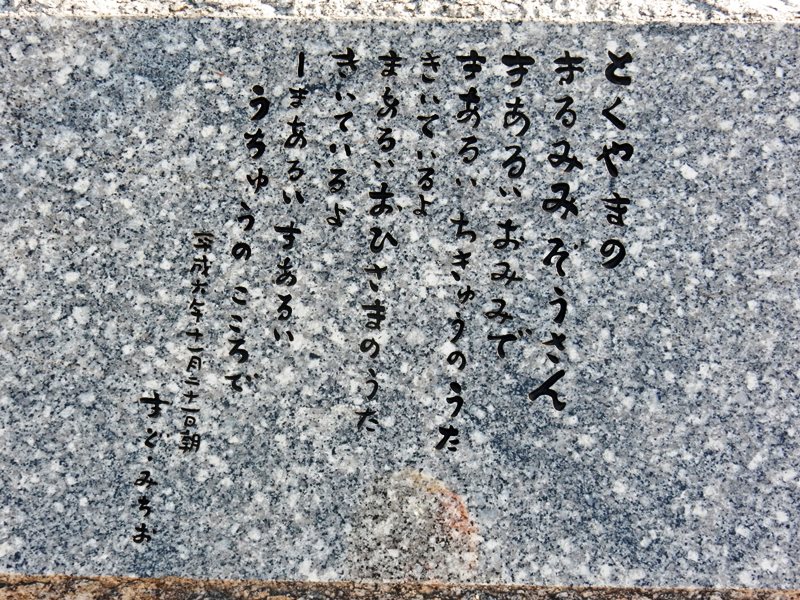 とくやまの
まるみみぞうさん
まあるい おみみで
まあるい ちきゅうのうた
きいているよ
まあるい おひさまのうた
きいているよ
ーまあるい まあるい
うちゅうの こころで
平成六年十一月二十一日朝
まど・みちお